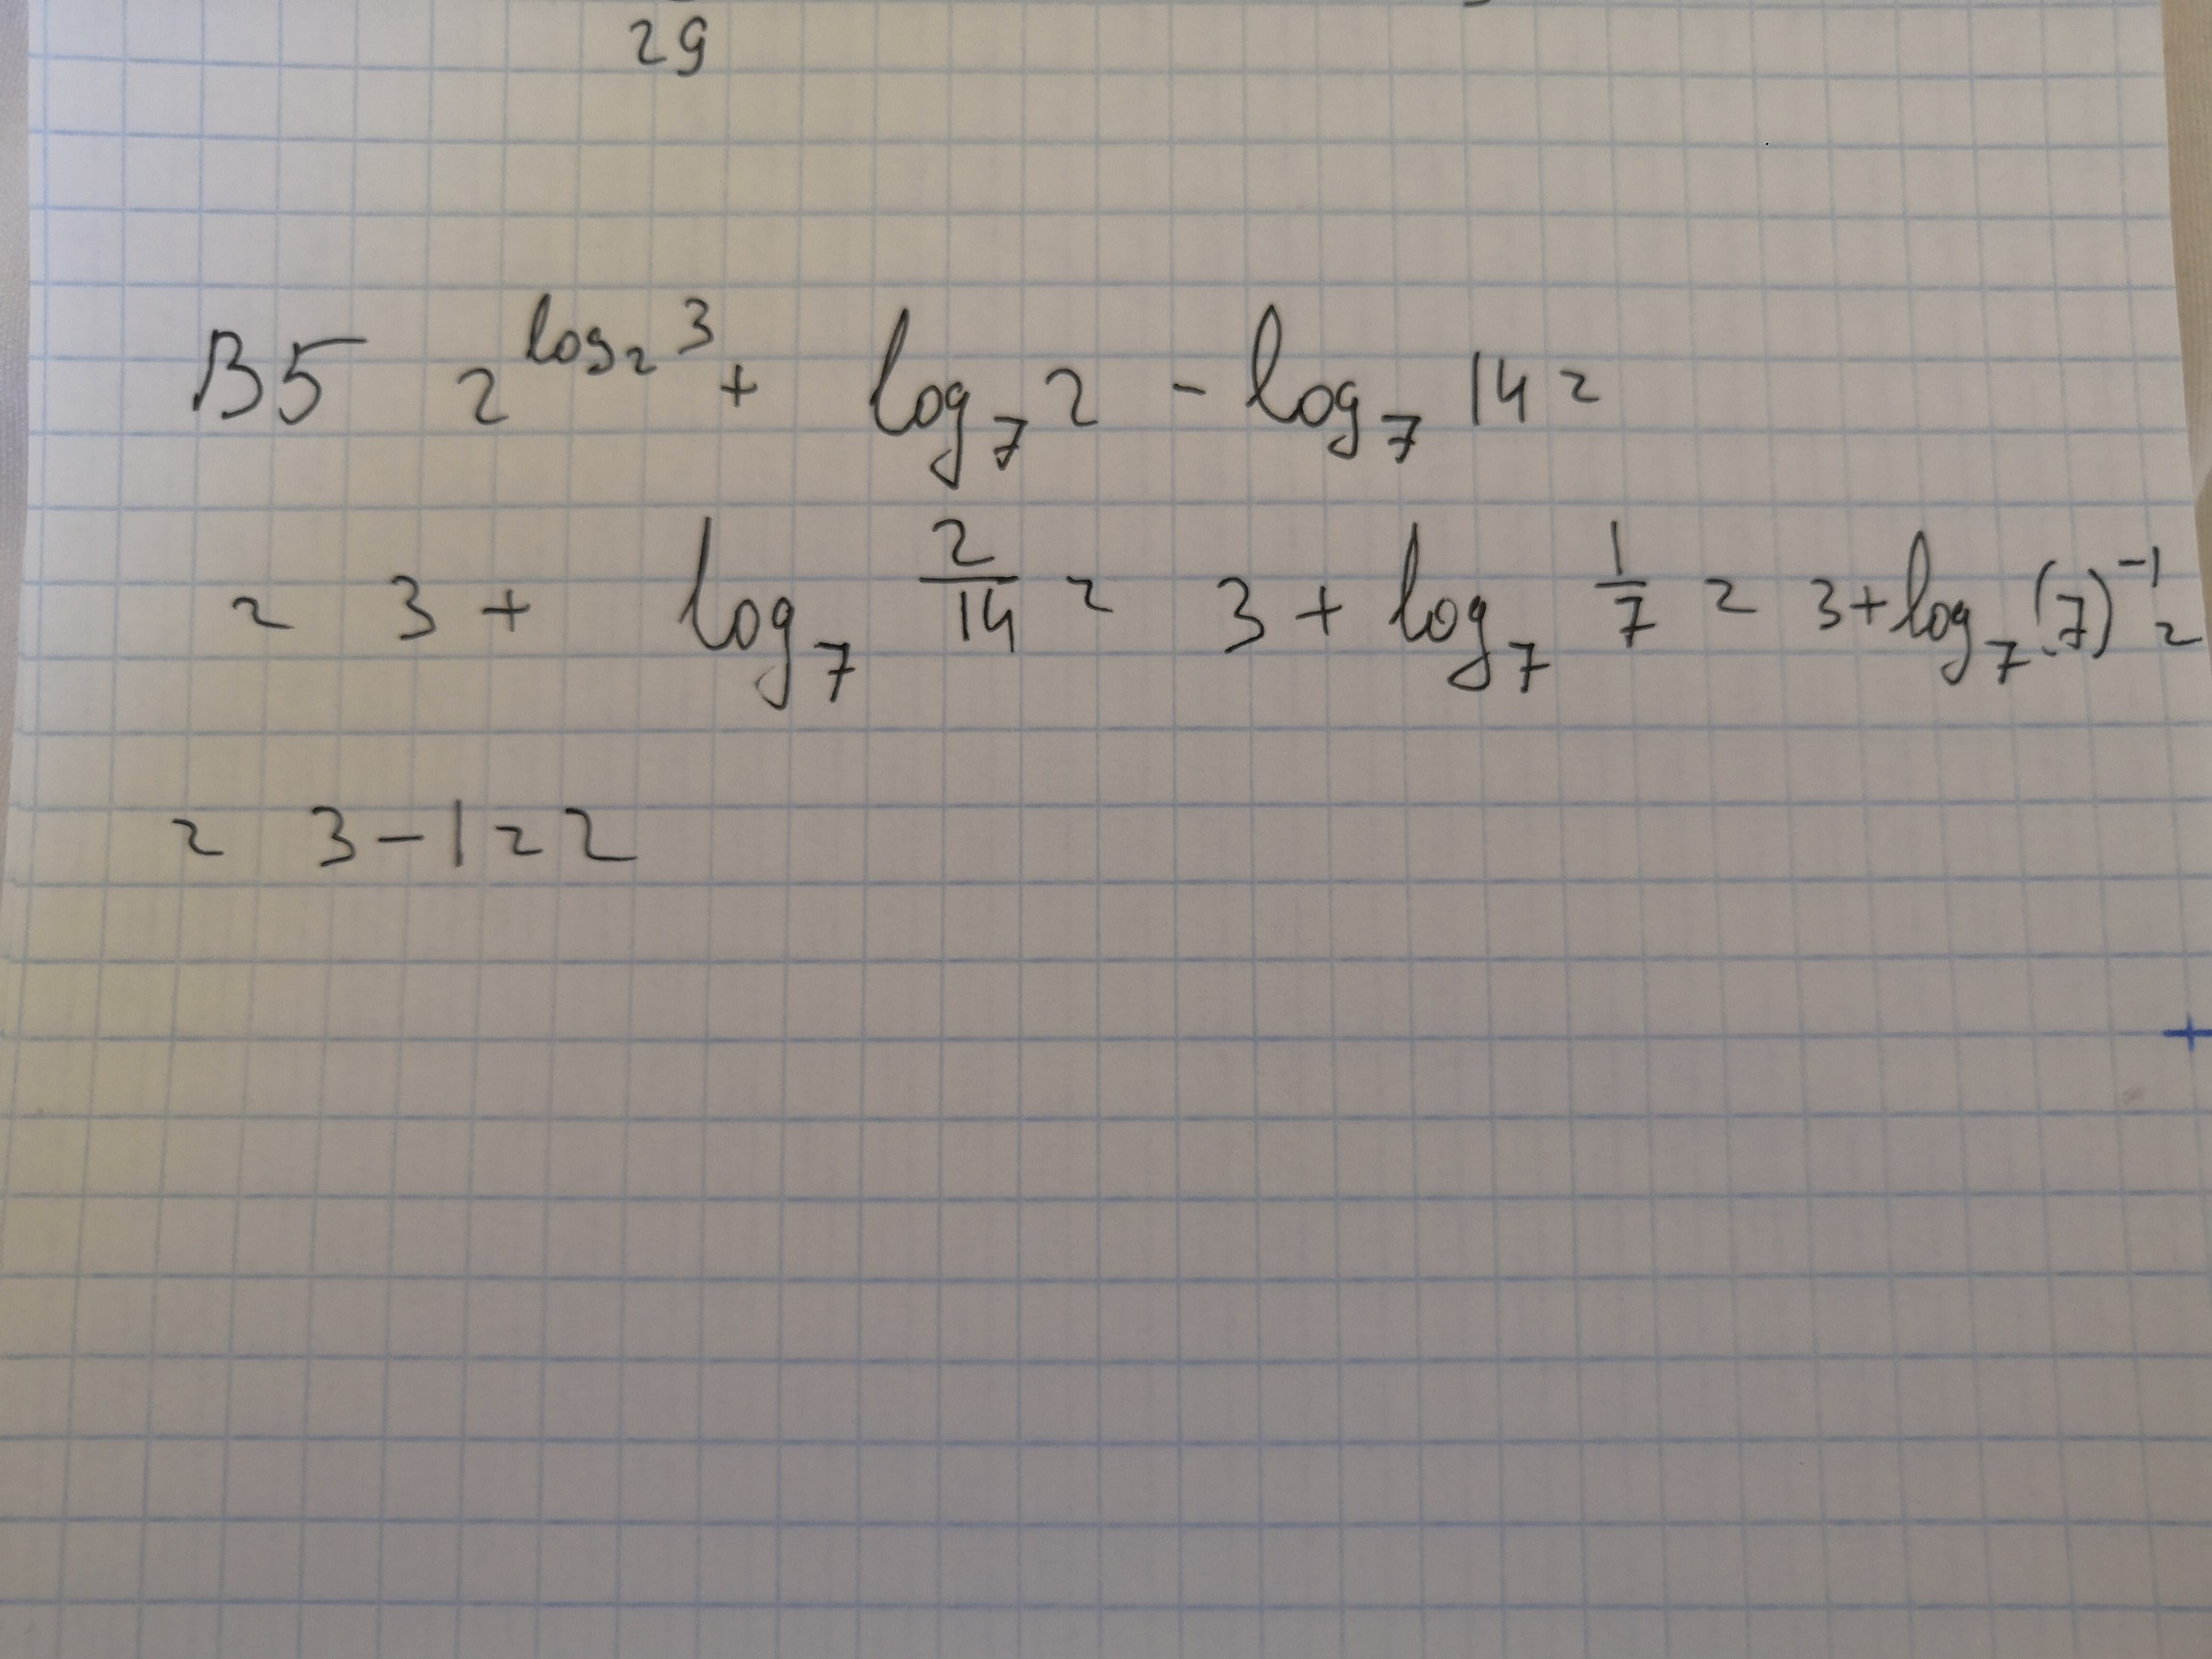 29
B5 2^log₂3 + log₇2 - log₇14 =
= 3 + log₇ 2/14 = 3 + log₇ 1/7 = 3 + log₇(7)⁻¹ =
= 3 - 1 = 2